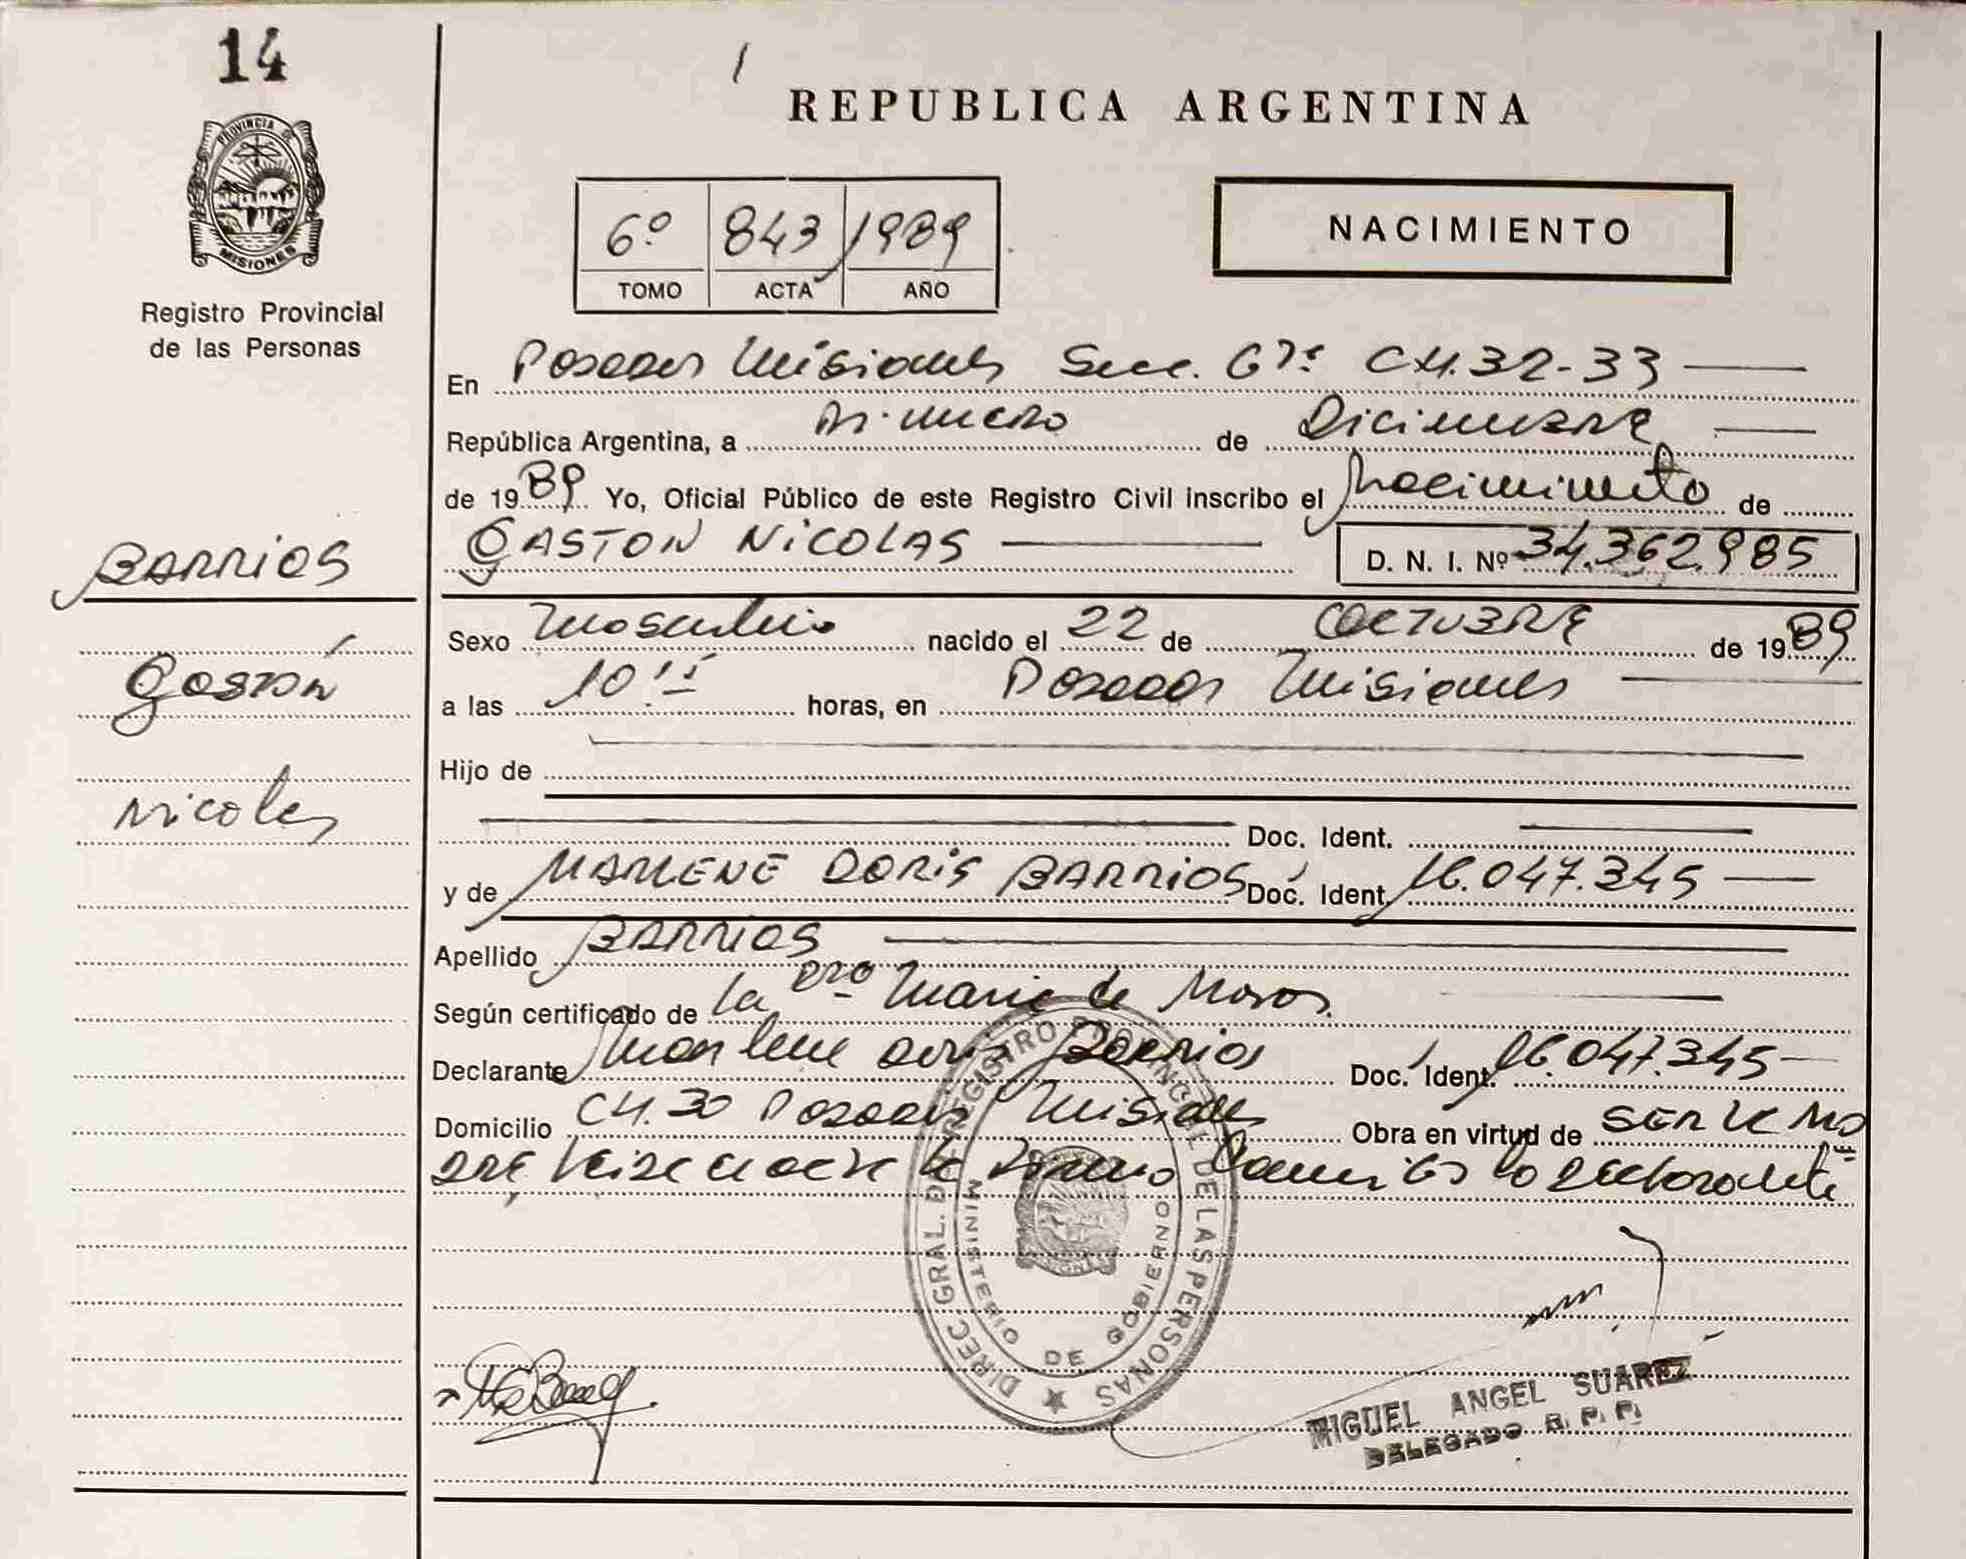 14
REPUBLICA ARGENTINA
PROVINCIA DE
MISIONES
Registro Provincial
de las Personas
6º 843 1989
TOMO ACTA AÑO
NACIMIENTO
En Posadas Misiones Secc. 6ta CH.32-33
República Argentina, a primero de Diciembre
de 1989 Yo, Oficial Público de este Registro Civil inscribo el Nacimiento de
GASTON NICOLAS D. N. I. Nº 34.362.985
BARRIOS
Gastón
Nicolas
Sexo Masculino nacido el 22 de OCTUBRE de 1989
a las 10 horas, en Posadas Misiones
Hijo de
Doc. Ident.
y de MARLENE DORIS BARRIOS Doc. Ident. 16.047.345
Apellido BARRIOS
Según certificado de la Dra Maria de
Declarante Marlene Doris Barrios Doc. Ident. 16.047.345
Domicilio CH.30 Posadas Misiones Obra en virtud de SER LA MA
DRE la declarante
DIREC GRAL. DE REGISTRO PROVINCIAL DE LAS PERSONAS
MINISTERIO DE GOBIERNO
MIGUEL ANGEL SUAREZ
DELEGADO R. P. P.